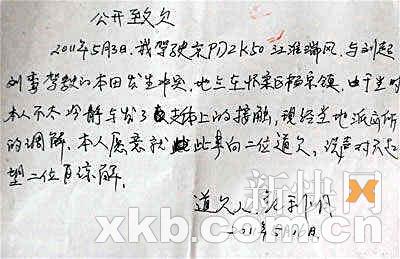 公开致欠
2011年5月3日,我驾驶京PD2K50江淮瑞风,与刘起
刘 驾驶的本田发生冲突,地点在怀柔区杨宋镇,由于当时
本人不太冷静与 发了 肢体上的接触,现经当地派出所
的调解,本人愿意就此事向二位道欠,说声对不起
望二位 谅解。
道欠人
2011年5月6日
新快网
xkb.com.cn